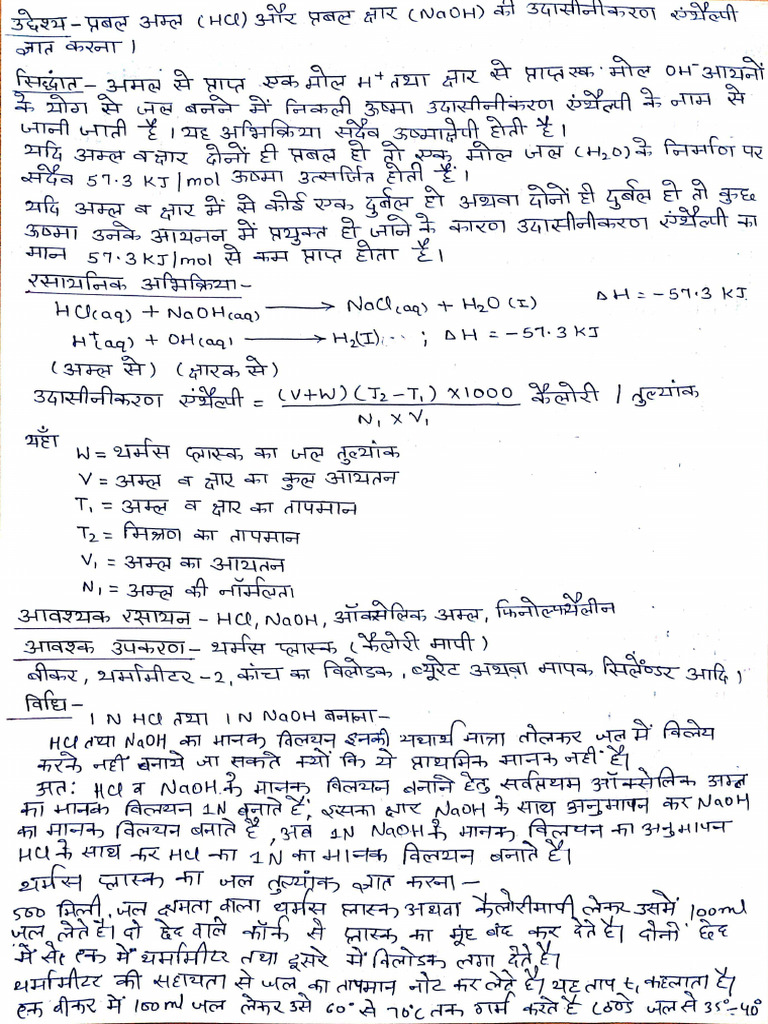 उद्देश्य - प्रबल अम्ल (HCl) और प्रबल क्षार (NaOH) की उदासीनीकरण एंथैल्पी
ज्ञात करना।
सिद्धांत - अमल से प्राप्त एक मोल H⁺ तथा क्षार से प्राप्त एक मोल OH⁻ आयनों
के योग से जल बनने में निकली ऊष्मा उदासीनीकरण एंथैल्पी के नाम से
जानी जाती है। यह अभिक्रिया सदैव ऊष्माक्षेपी होती है।
यदि अम्ल व क्षार दोनों ही प्रबल हो तो एक मोल जल (H₂O) के निर्माण पर
सदैव 57.3 KJ/mol ऊष्मा उत्सर्जित होती है।
यदि अम्ल व क्षार में से कोई एक दुर्बल हो अथवा दोनों ही दुर्बल हो तो कुछ
ऊष्मा उनके आयनन में प्रयुक्त हो जाने के कारण उदासीनीकरण एंथैल्पी का
मान 57.3 KJ/mol से कम प्राप्त होता है।
रसायनिक अभिक्रिया -
HCl(aq) + NaOH(aq) ⟶ NaCl(aq) + H₂O(l) ΔH = -57.3 KJ
H⁺(aq) + OH(aq) ⟶ H₂(l)... ; ΔH = -57.3 KJ
(अम्ल से) (क्षारक से)
उदासीनीकरण एंथैल्पी = (V+W)(T₂-T₁)×1000 / N₁×V₁ कैलोरी / तुल्यांक
यहाँ
W = थर्मस प्लास्क का जल तुल्यांक
V = अम्ल व क्षार का कुल आयतन
T₁ = अम्ल व क्षार का तापमान
T₂ = मिश्रण का तापमान
V₁ = अम्ल का आयतन
N₁ = अम्ल की नॉर्मलता
आवश्यक रसायन - HCl, NaOH, ऑक्सेलिक अम्ल, फिनोल्फथैलीन
आवश्क उपकरण - थर्मस प्लास्क (कैलोरी मापी)
बीकर, थर्मामीटर -2, कांच का विलोडक, ब्यूरेट अथवा मापक सिलैण्डर आदि।
विधि -
1N HCl तथा 1N NaOH बनाना -
HCl तथा NaOH का मानक विलयन इनकी यथार्थ मात्रा तोलकर जल में विलेय
करके नहीं बनाये जा सकते क्यों कि ये प्राथमिक मानक नहीं है।
अतः HCl व NaOH के मानक विलयन बनाने हेतु सर्वप्रथम ऑक्सेलिक अम्ल
का मानक विलयन 1N बनाते हैं, इसका क्षार NaOH के साथ अनुमापन कर NaOH
का मानक विलयन बनाते है, अब 1N NaOH के मानक विलयन का अनुमापन
HCl के साथ कर HCl का 1N का मानक विलयन बनाते है।
थर्मस प्लास्क का जल तुल्यांक ज्ञात करना -
500 मिली. जल क्षमता वाला थर्मस प्लास्क अथवा कैलोरीमापी लेकर उसमें 100ml
जल लेते है। दो छेद वाले कॉर्क से प्लास्क का मुंह बंद कर देते है। दोनों छेद
में से एक में थर्मामीटर तथा दूसरे में विलोडक लगा देते है।
थर्मामीटर की सहायता से जल का तापमान नोट कर लेते है। यह ताप t₁ कहलाता है।
एक बीकर में 100ml जल लेकर उसे 60° से 70°C तक गर्म करते है (ठण्डे जल से 35°-40°